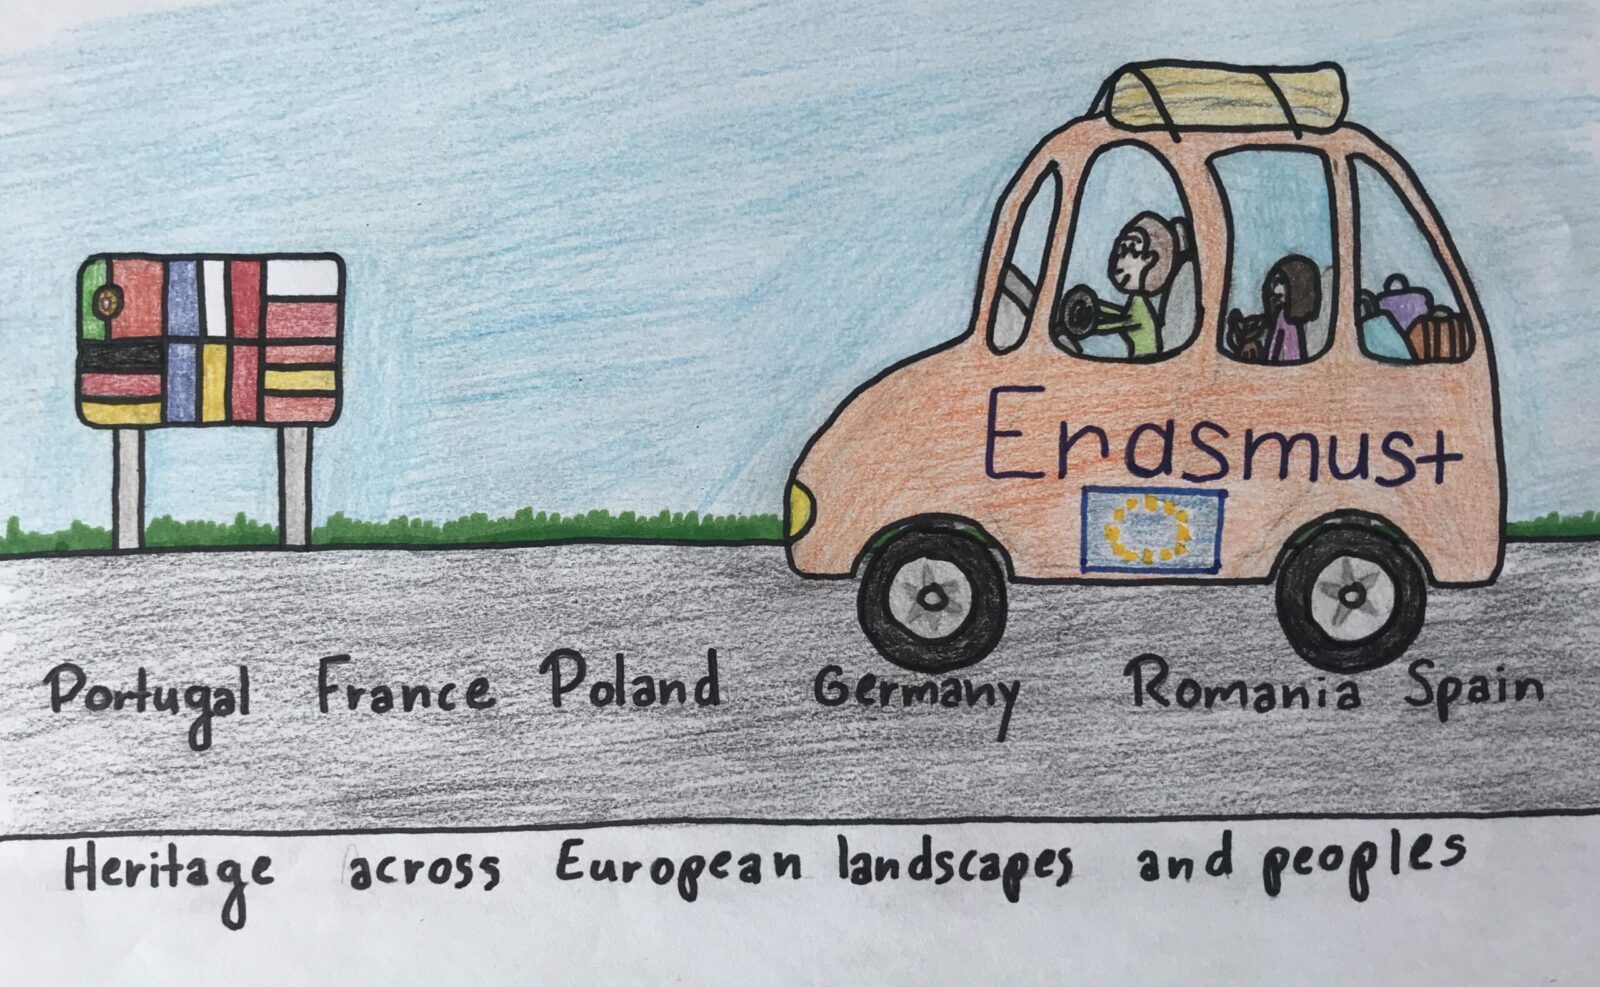 Erasmus+
Portugal France Poland Germany Romania Spain
Heritage across European landscapes and peoples